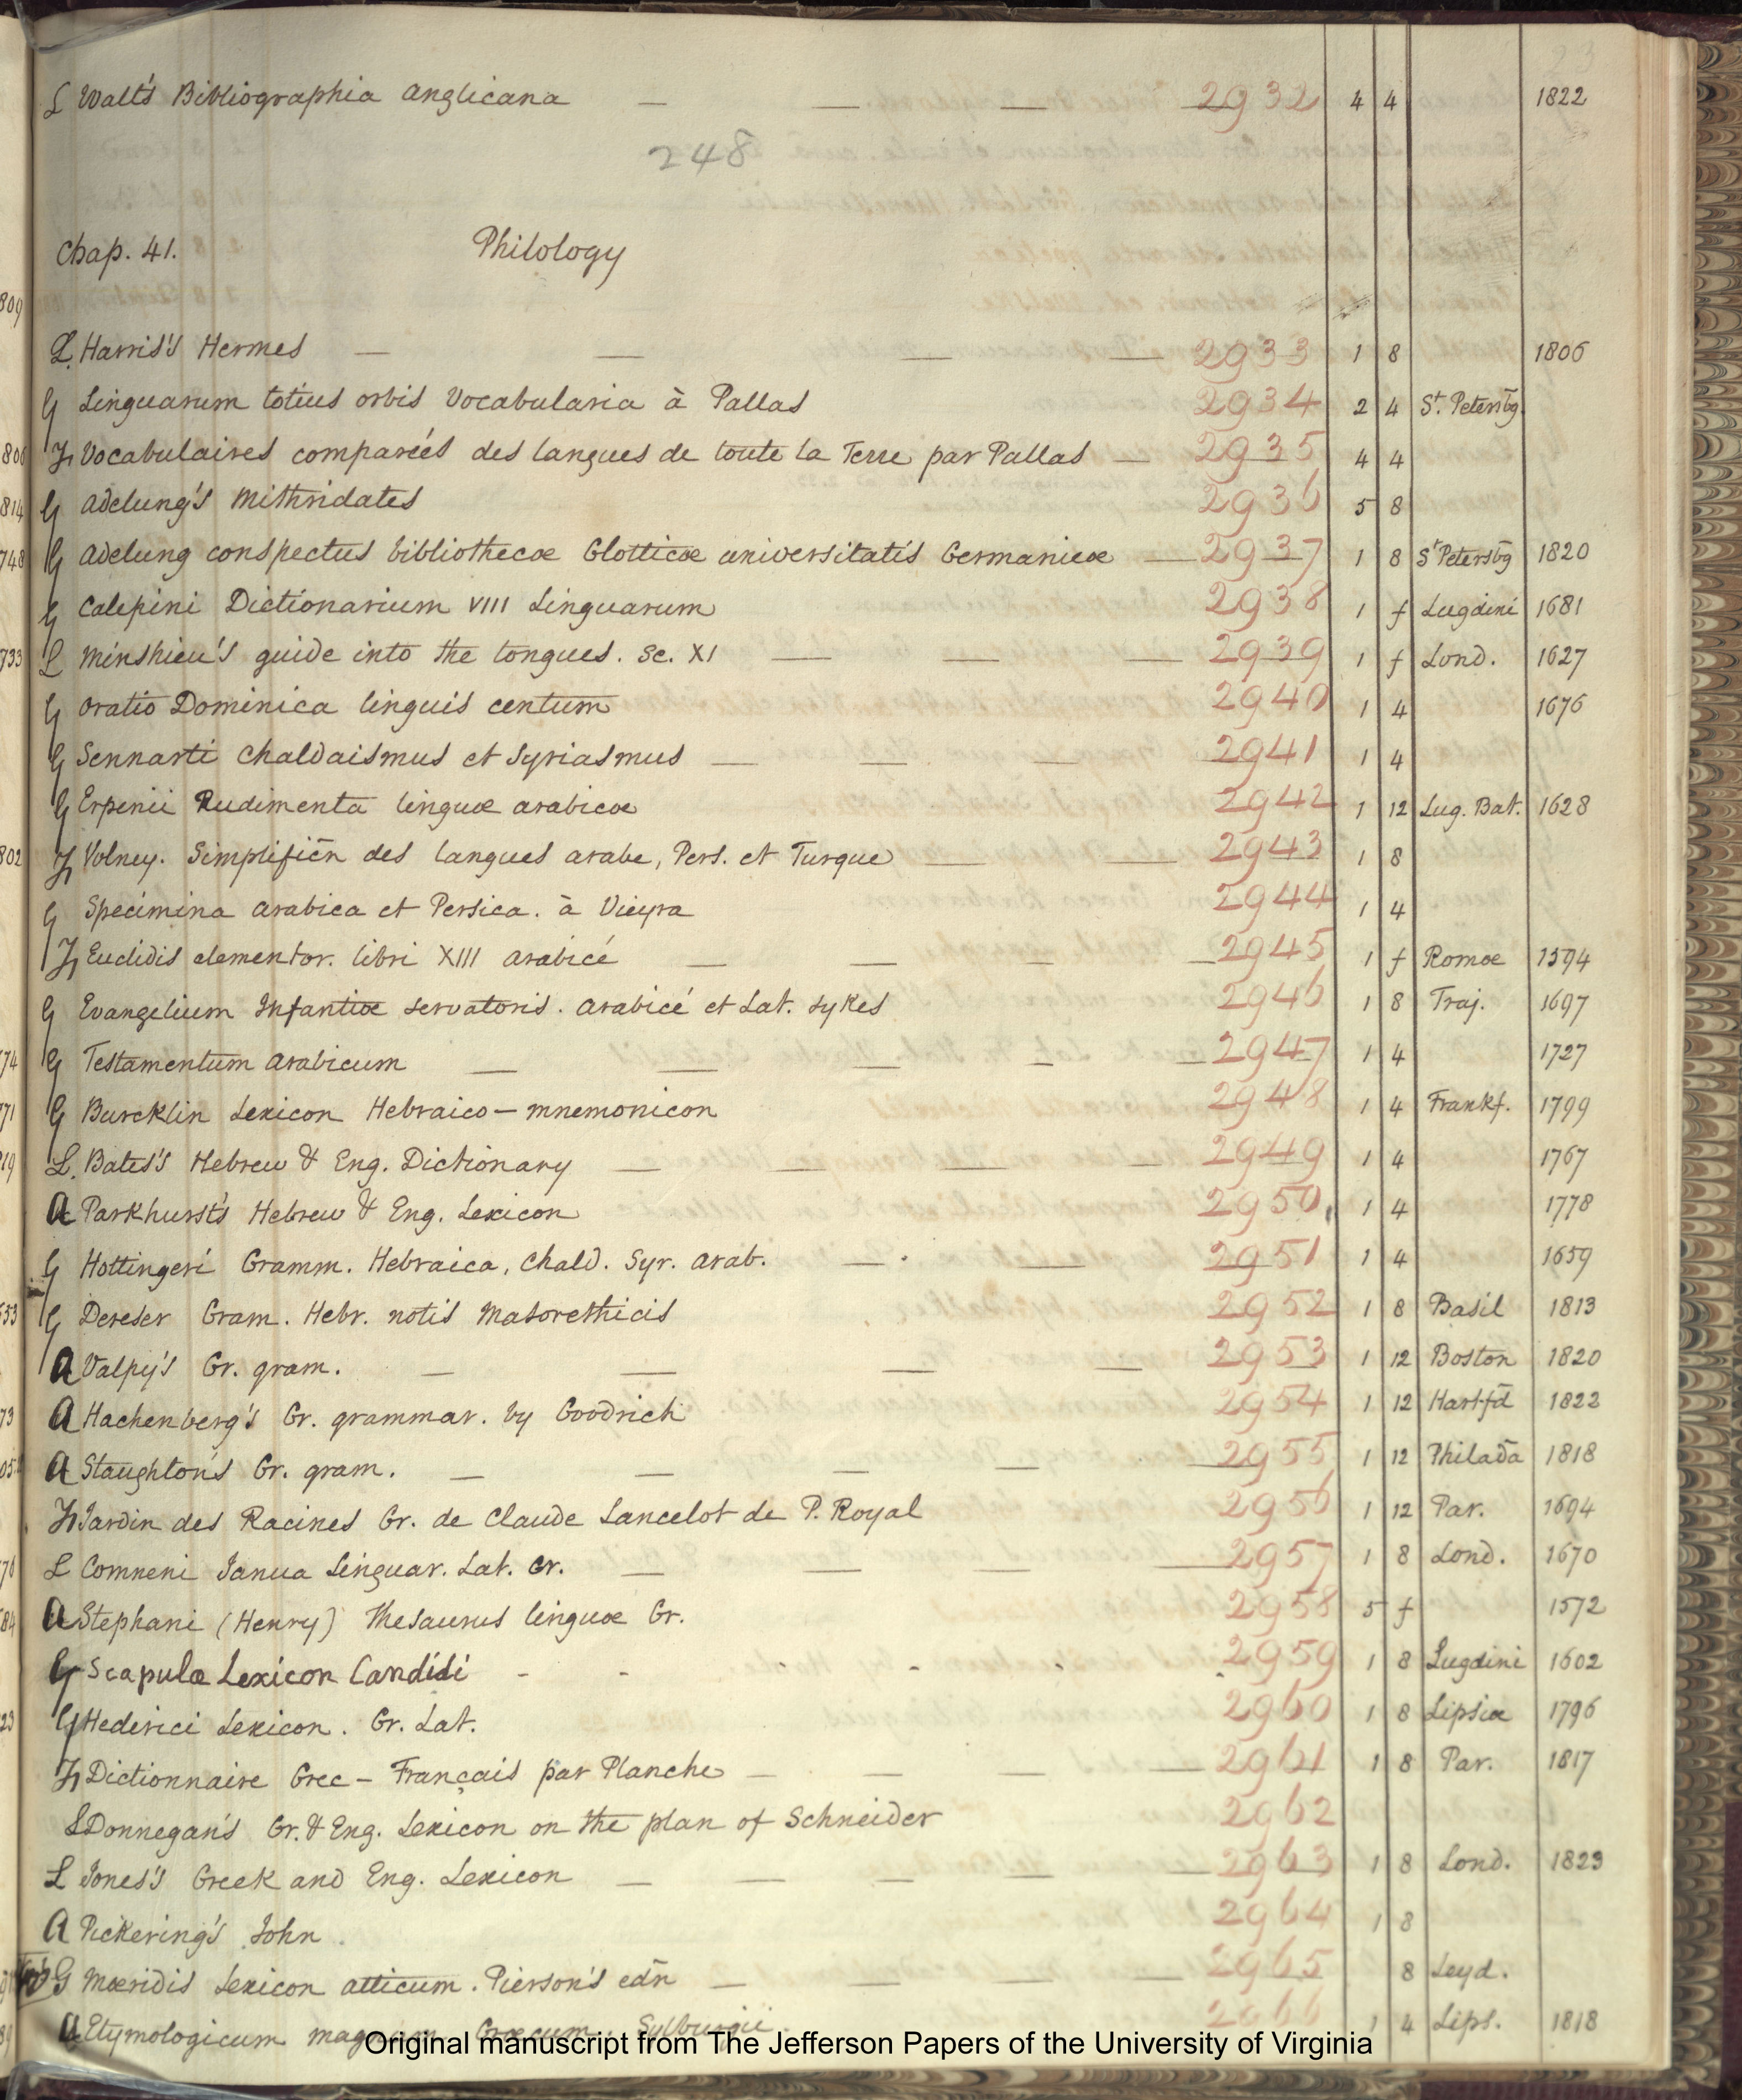 L Watt's Bibliographia Anglicana — — — 2932 4 4 1822
248
Chap. 41. Philology
L. Harris's Hermes — — — — 2933 1 8 1806
G Linguarum totius orbis Vocabularia à Pallas 2934 2 4 St. Petersbg.
Fr Vocabulaires comparées des langues de toute la Terre par Pallas — 2935 4 4
G Adelung's Mithridates 2936 5 8
G Adelung conspectus bibliothecae Glotticae universitatis Germanicae — 2937 1 8 St Petersbg 1820
G Calepini Dictionarium VIII Linguarum 2938 1 f Lugdini 1681
L Minshieu's guide into the tongues. sc. XI — — — 2939 1 f Lond. 1627
G Oratio Dominica linguis centum 2940 1 4 1676
G Sennarti Chaldaismus et Syriasmus — — — 2941 1 4
G Erpenii Rudimenta linguae arabicae 2942 1 12 Lug. Bat. 1628
Fr Volney. Simplificn des langues arabe, Pers. et Turque — — 2943 1 8
G Specimina Arabica et Persica. à Vieyra 2944 1 4
Fr Euclidis elementor. libri XIII Arabicé — — — — 2945 1 f Romae 1594
G Evangelium Infantiae servatoris. Arabicé et Lat. Sykes 2946 1 8 Traj. 1697
G Testamentum Arabicum — — — — — 2947 1 4 1727
G Burcklin Lexicon Hebraico-mnemonicon 2948 1 4 Frankf. 1799
L. Bates's Hebrew & Eng. Dictionary — — — — 2949 1 4 1767
A Parkhurst's Hebrew & Eng. Lexicon 2950. 1 4 1778
G Hottingeri Gramm. Hebraica, Chald. Syr. Arab. — — 2951 1 4 1659
G Dereser Gram. Hebr. notis Masorethicis 2952 1 8 Basil 1813
A Valpy's Gr. gram. — — — — 2953 1 12 Boston 1820
A Hachenberg's Gr. grammar. by Goodrich 2954 1 12 Hartfd 1822
A Staughton's Gr. gram. — — — — — 2955 1 12 Philada 1818
Fr Jardin des Racines Gr. de Claude Lancelot de P. Royal 2956 1 12 Par. 1694
L Comneni Janua Linguar. Lat. Gr. — — — — 2957 1 8 Lond. 1670
A Stephani (Henry) Thesaurus linguae Gr. 2958 5 f 1572
G Scapulae Lexicon Candidi - - - - - - 2959 1 8 Lugdini 1602
G Hederici Lexicon. Gr. Lat. 2960 1 8 Lipsiae 1796
Fr Dictionnaire Grec-Français par Planche — — — — 2961 1 8 Par. 1817
L Donnegan's Gr. & Eng. Lexicon on the plan of Schneider 2962
L Jones's Greek and Eng. Lexicon — — — — — 2963 1 8 Lond. 1823
A Pickering's John. 2964 1 8
G Moeridis Lexicon atticum. Pierson's edn — — — — 2965 8 Leyd.
G Etymologicum magnum Graecum. Sylburgii. 2966 1 4 Lips. 1818
Original manuscript from The Jefferson Papers of the University of Virginia